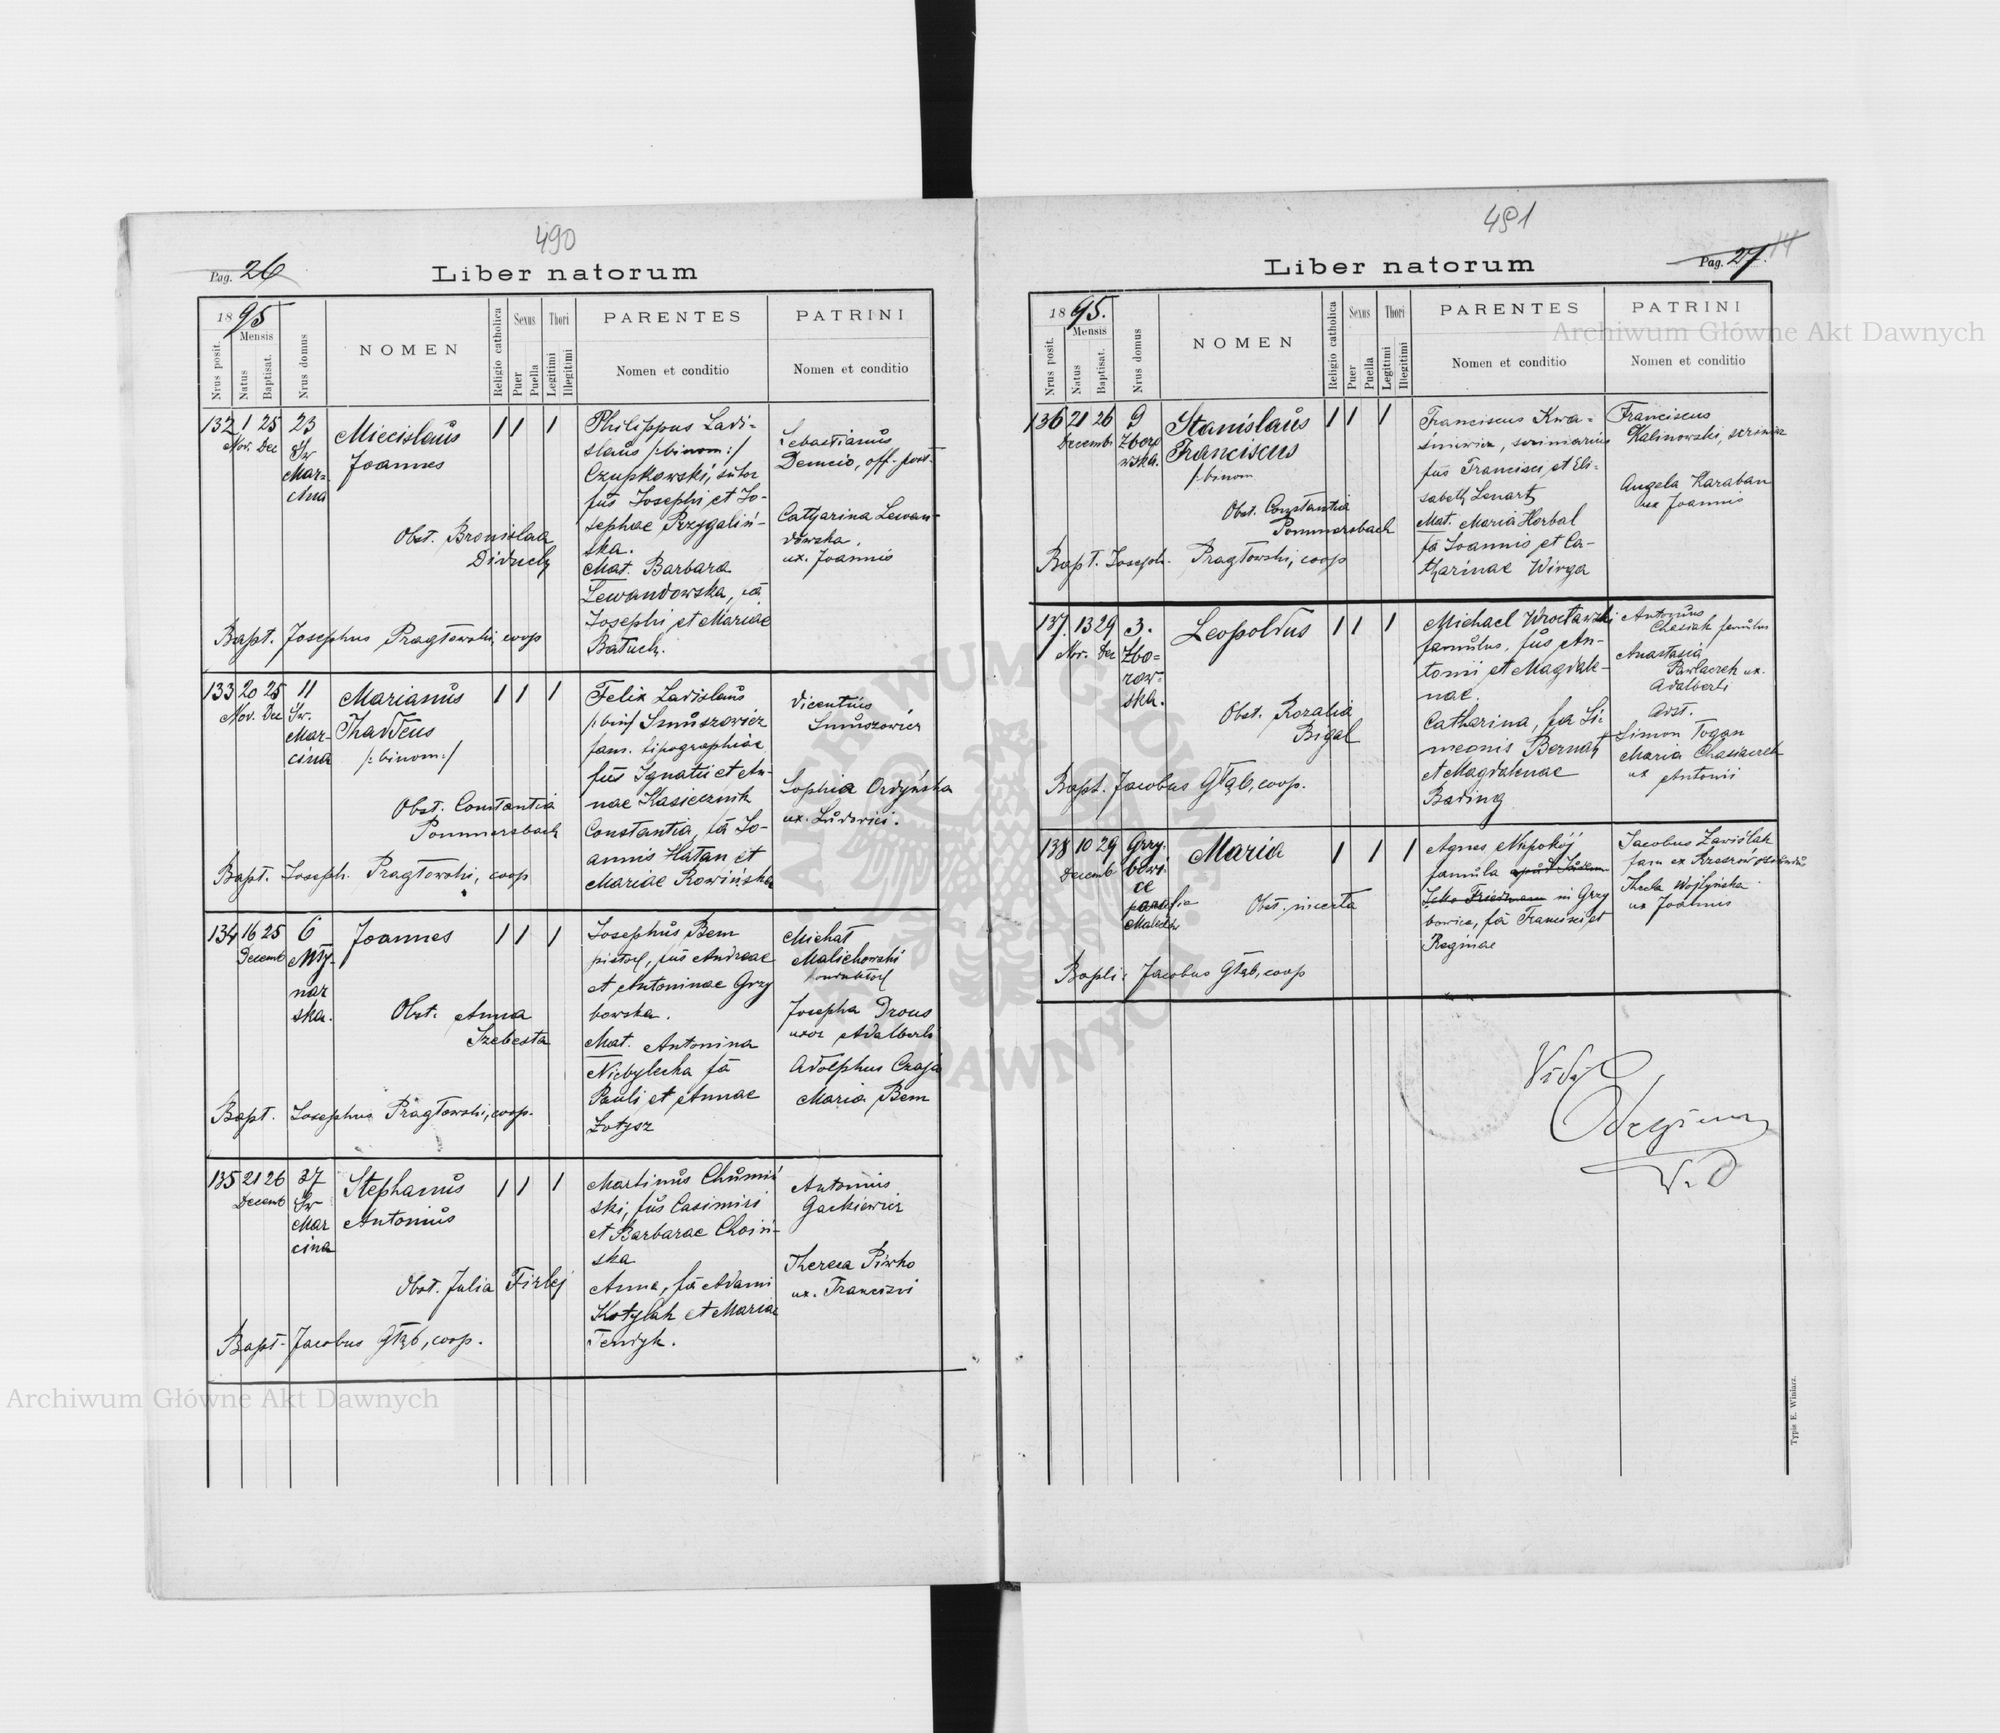 490
Pag. 26
Liber natorum
18 95
Mensis
Nrus posit.
Natus
Baptisat.
Nrus domus
NOMEN
Religio catholica
Sexus
Puer
Puella
Thori
Legitimi
Illegitimi
PARENTES
Nomen et conditio
PATRINI
Nomen et conditio
132 1 25 23
Nov. Dec Sw
Mar-
cina
Miecislaus
Joannes
Obst. Bronislaa
Diduch
Bapt. Josephus Pragłowski, coop
1 1 1
Philippus Ladi-
slaus /:binom:/
Czupkowski, sutor
fus Josephi et Jo-
sephae Przygaliń-
ska.
Mat. Barbara
Lewandowska, fa
Josephi et Mariae
Batuch.
Sebastianus
Demcio, off. post.
Catharina Lewan-
dowska.
ux. Joannis
133 20 25 11
Nov. Dec Sw.
Mar-
cina
Marianus
Thaddeus
/:binom:/
Obst. Constantia
Pommersbach
Bapt. Joseph. Pragłowski, coop
1 1 1
Felix Ladislaus
/:bin/ Smuszowicz
fam. tipographiae
fus Ignatii et An-
nae Kasiecznik
Constantia, fa Jo-
annis Hatan et
Mariae Rowińska
Vicentius
Smuszowicz
Sophia Ordyńska
ux. Ludovici.
134 16 25 6
Decemb Mły-
nar
ska.
Joannes
Obst. Anna
Szebesta
Bapt. Josephus Pragłowski, coop.
1 1 1
Josephus Bem
pistor, fus Andreae
et Antoninae Grzy
bowska.
Mat. Antonina
Niebylecka fa
Pauli et Annae
Łotysz
Michał
Malichowski
Josepha Drous
uxor Adalberti
Adolphus Czaja
Maria Bem
135 21 26 37
Decemb Sw
Mar
cina
Stephanus
Antonius
Obst. Julia Firlej
Bapt. Jacobus Głąb, coop.
1 1 1
Martinus Chumiń
ski, fus Casimiri
et Barbarae Choiń-
ska
Anna, fa Adami
Kotylak et Mariae
Tendyk.
Antonius
Gackiewicz
Theresa Piwko
ux. Francisci
491
Liber natorum
Pag. 27. 14
18 95.
Mensis
Nrus posit.
Natus
Baptisat.
Nrus domus
NOMEN
Religio catholica
Sexus
Puer
Puella
Thori
Legitimi
Illegitimi
PARENTES
Nomen et conditio
PATRINI
Nomen et conditio
136 21 26 9
Decemb Zboro
wska.
Stanislaus
Franciscus
/:binom
Obst. Constantia
Pommersbach
Bapt. Joseph. Pragłowski, coop
1 1 1
Franciscus Kwa-
śniewicz, scriniarius
fus Francisci et Eli-
sabeth Lenart
Mat. Maria Horbal
fa Joannis et Ca-
tharinae Wirga
Franciscus
Kalinowski, scriniar
Angela Karaban
ux Joannis
137. 13 29 3.
Nov. Dec Zbo-
row-
ska.
Leopoldus
Obst. Rozalia
Bigal
Bapt. Jacobus Głąb, coop.
1 1 1
Michael Wrocławski
famulus, fus An-
tonii et Magdale-
nae.
Catharina, fa Si-
meonis Bernat
et Magdalenae
Bading
Antonius
Chasiak famulus
Anastasia
Pawlaczek ux.
Adalberti
Adst.
Simon Togan
Maria
ux Antonii
138 10 29 Grzy-
Decemb bowi-
ce
parafia
Malechów
Maria
Obst. incerta
Bapti: Jacobus Głąb, coop
1 1 1
Agnes Niepokój
famula apud Judaeum
Icko Friedmann in Grzy
bowice, fa Francisci et
Reginae
Jacobus Zawiślak
fam ex
Thecla Wojtyńska
ux Joannis
Vidi
V. D
Typis E. Winiarz.
Archiwum Główne Akt Dawnych
Archiwum Główne Akt Dawnych
ARCHIWUM GŁÓWNE AKT DAWNYCH